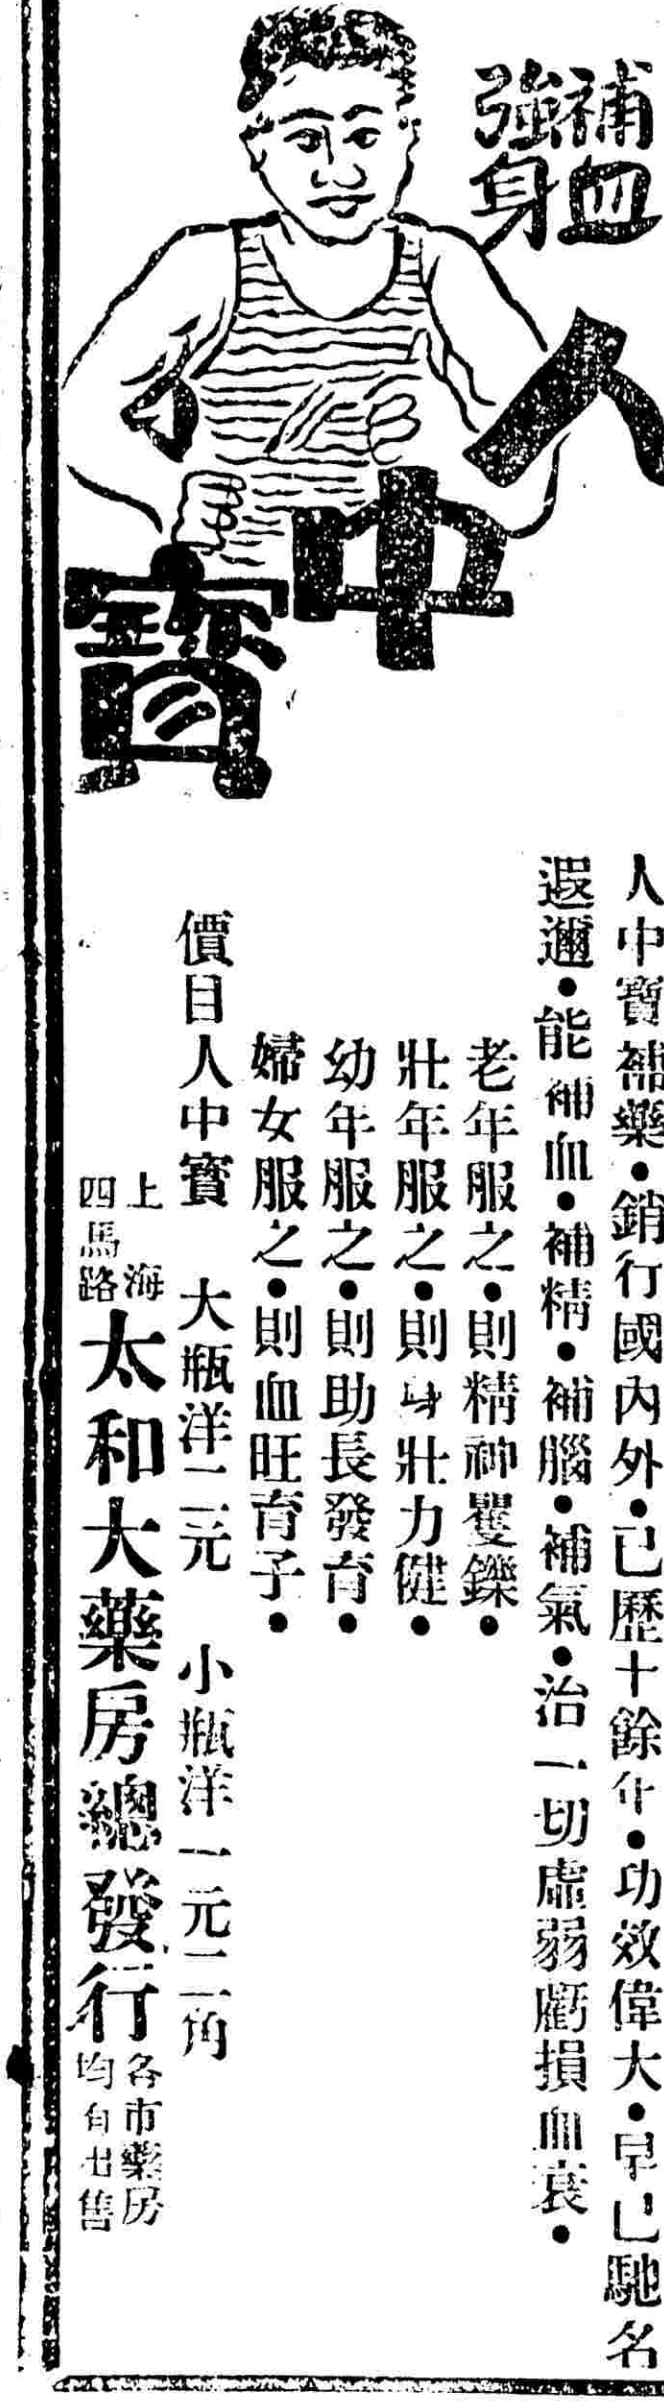 補血
強身
人中寶
人中寶補藥•銷行國內外•已歷十餘年•功效偉大•早已馳名
遐邇•能補血•補精•補腦•補氣•治一切虛弱虧損血衰•
老年服之•則精神矍鑠•
壯年服之•則身壯力健•
幼年服之•則助長發育•
婦女服之•則血旺育子•
價目人中寶 大瓶洋二元 小瓶洋一元二角
上海
四馬路
太和大藥房總發行
各市藥房
均有出售